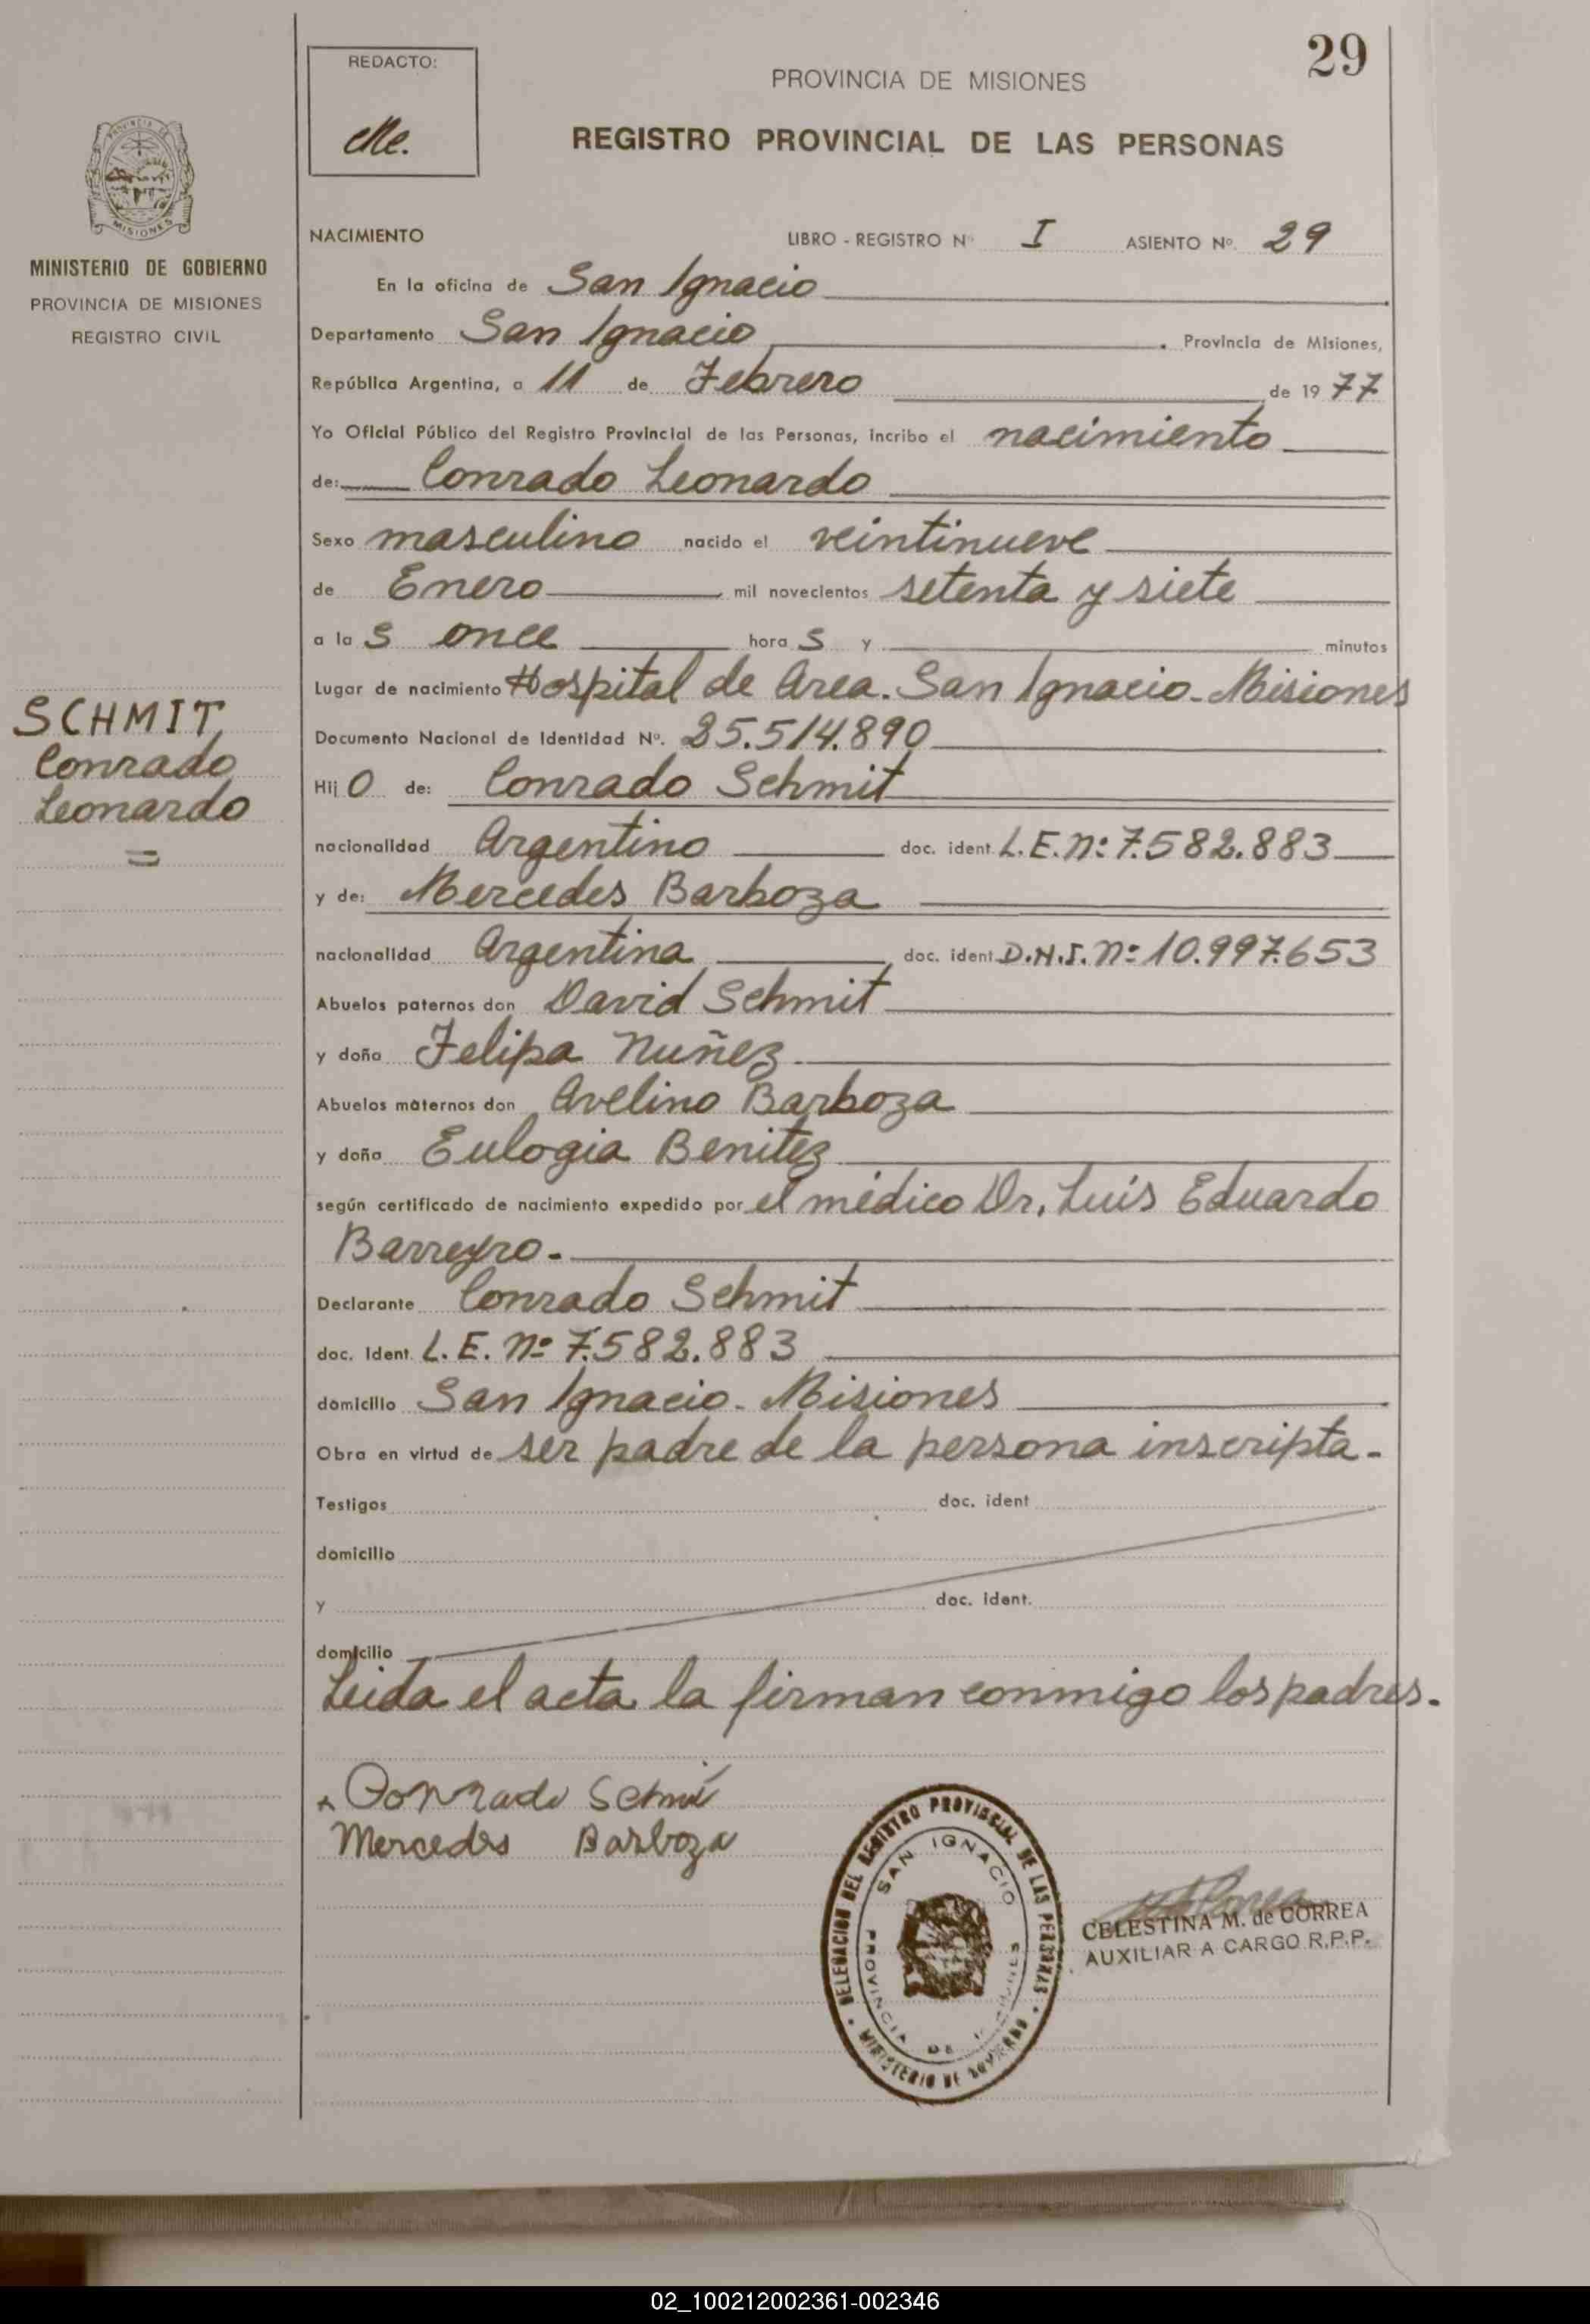 29
REDACTO:
PROVINCIA DE MISIONES
REGISTRO PROVINCIAL DE LAS PERSONAS
MISIONES
MINISTERIO DE GOBIERNO
PROVINCIA DE MISIONES
REGISTRO CIVIL
NACIMIENTO LIBRO - REGISTRO Nº I ASIENTO Nº. 29
En la oficina de San Ignacio
Departamento San Ignacio . Provincia de Misiones,
República Argentina, a 11 de Febrero de 1977
Yo Oficial Público del Registro Provincial de las Personas, incribo el nacimiento
de: Conrado Leonardo
Sexo masculino nacido el veintinueve
de Enero mil novecientos setenta y siete
a las once horas y minutos
Lugar de nacimiento Hospital de Area. San Ignacio - Misiones
Documento Nacional de Identidad Nº. 25.514.890
SCHMIT,
Conrado
Leonardo
=
Hijo de: Conrado Schmit
nacionalidad Argentino doc. ident. L.E. Nº: 7.582.883
y de: Mercedes Barboza
nacionalidad Argentina doc. ident. D.N.I. Nº: 10.997.653
Abuelos paternos don David Schmit
y doña Felipa Nuñez
Abuelos maternos don Avelino Barboza
y doña Eulogia Benitez
según certificado de nacimiento expedido por el médico Dr. Luis Eduardo
Barreyro.-
Declarante Conrado Schmit
doc. Ident. L.E. Nº 7.582.883
domicilio San Ignacio - Misiones
Obra en virtud de ser padre de la persona inscripta.-
Testigos doc. ident
domicilio
y doc. ident.
domicilio
Leida el acta la firman conmigo los padres.-
Conrado Schmi
Mercedes Barboza
DELEGACION DEL REGISTRO PROVINCIAL DE LAS PERSONAS
SAN IGNACIO
PROVINCIA DE MISIONES
MINISTERIO DE GOBIERNO
CELESTINA M. de CORREA
AUXILIAR A CARGO R.P.P.
02_100212002361-002346